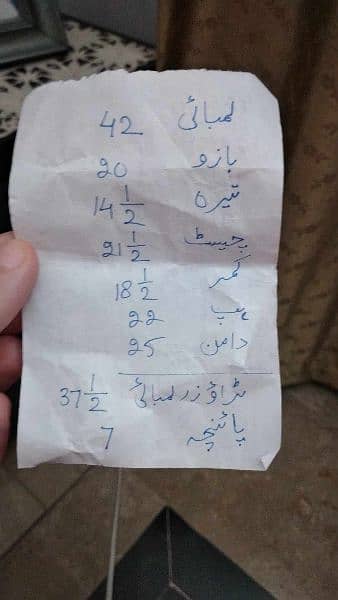 لمبائی 42
بازو 20
تیرہ 14 1/2
چیسٹ 21 1/2
کمر 18 1/2
ہپ 22
دامن 25
ٹراؤزر لمبائی 37 1/2
پائنچہ 7